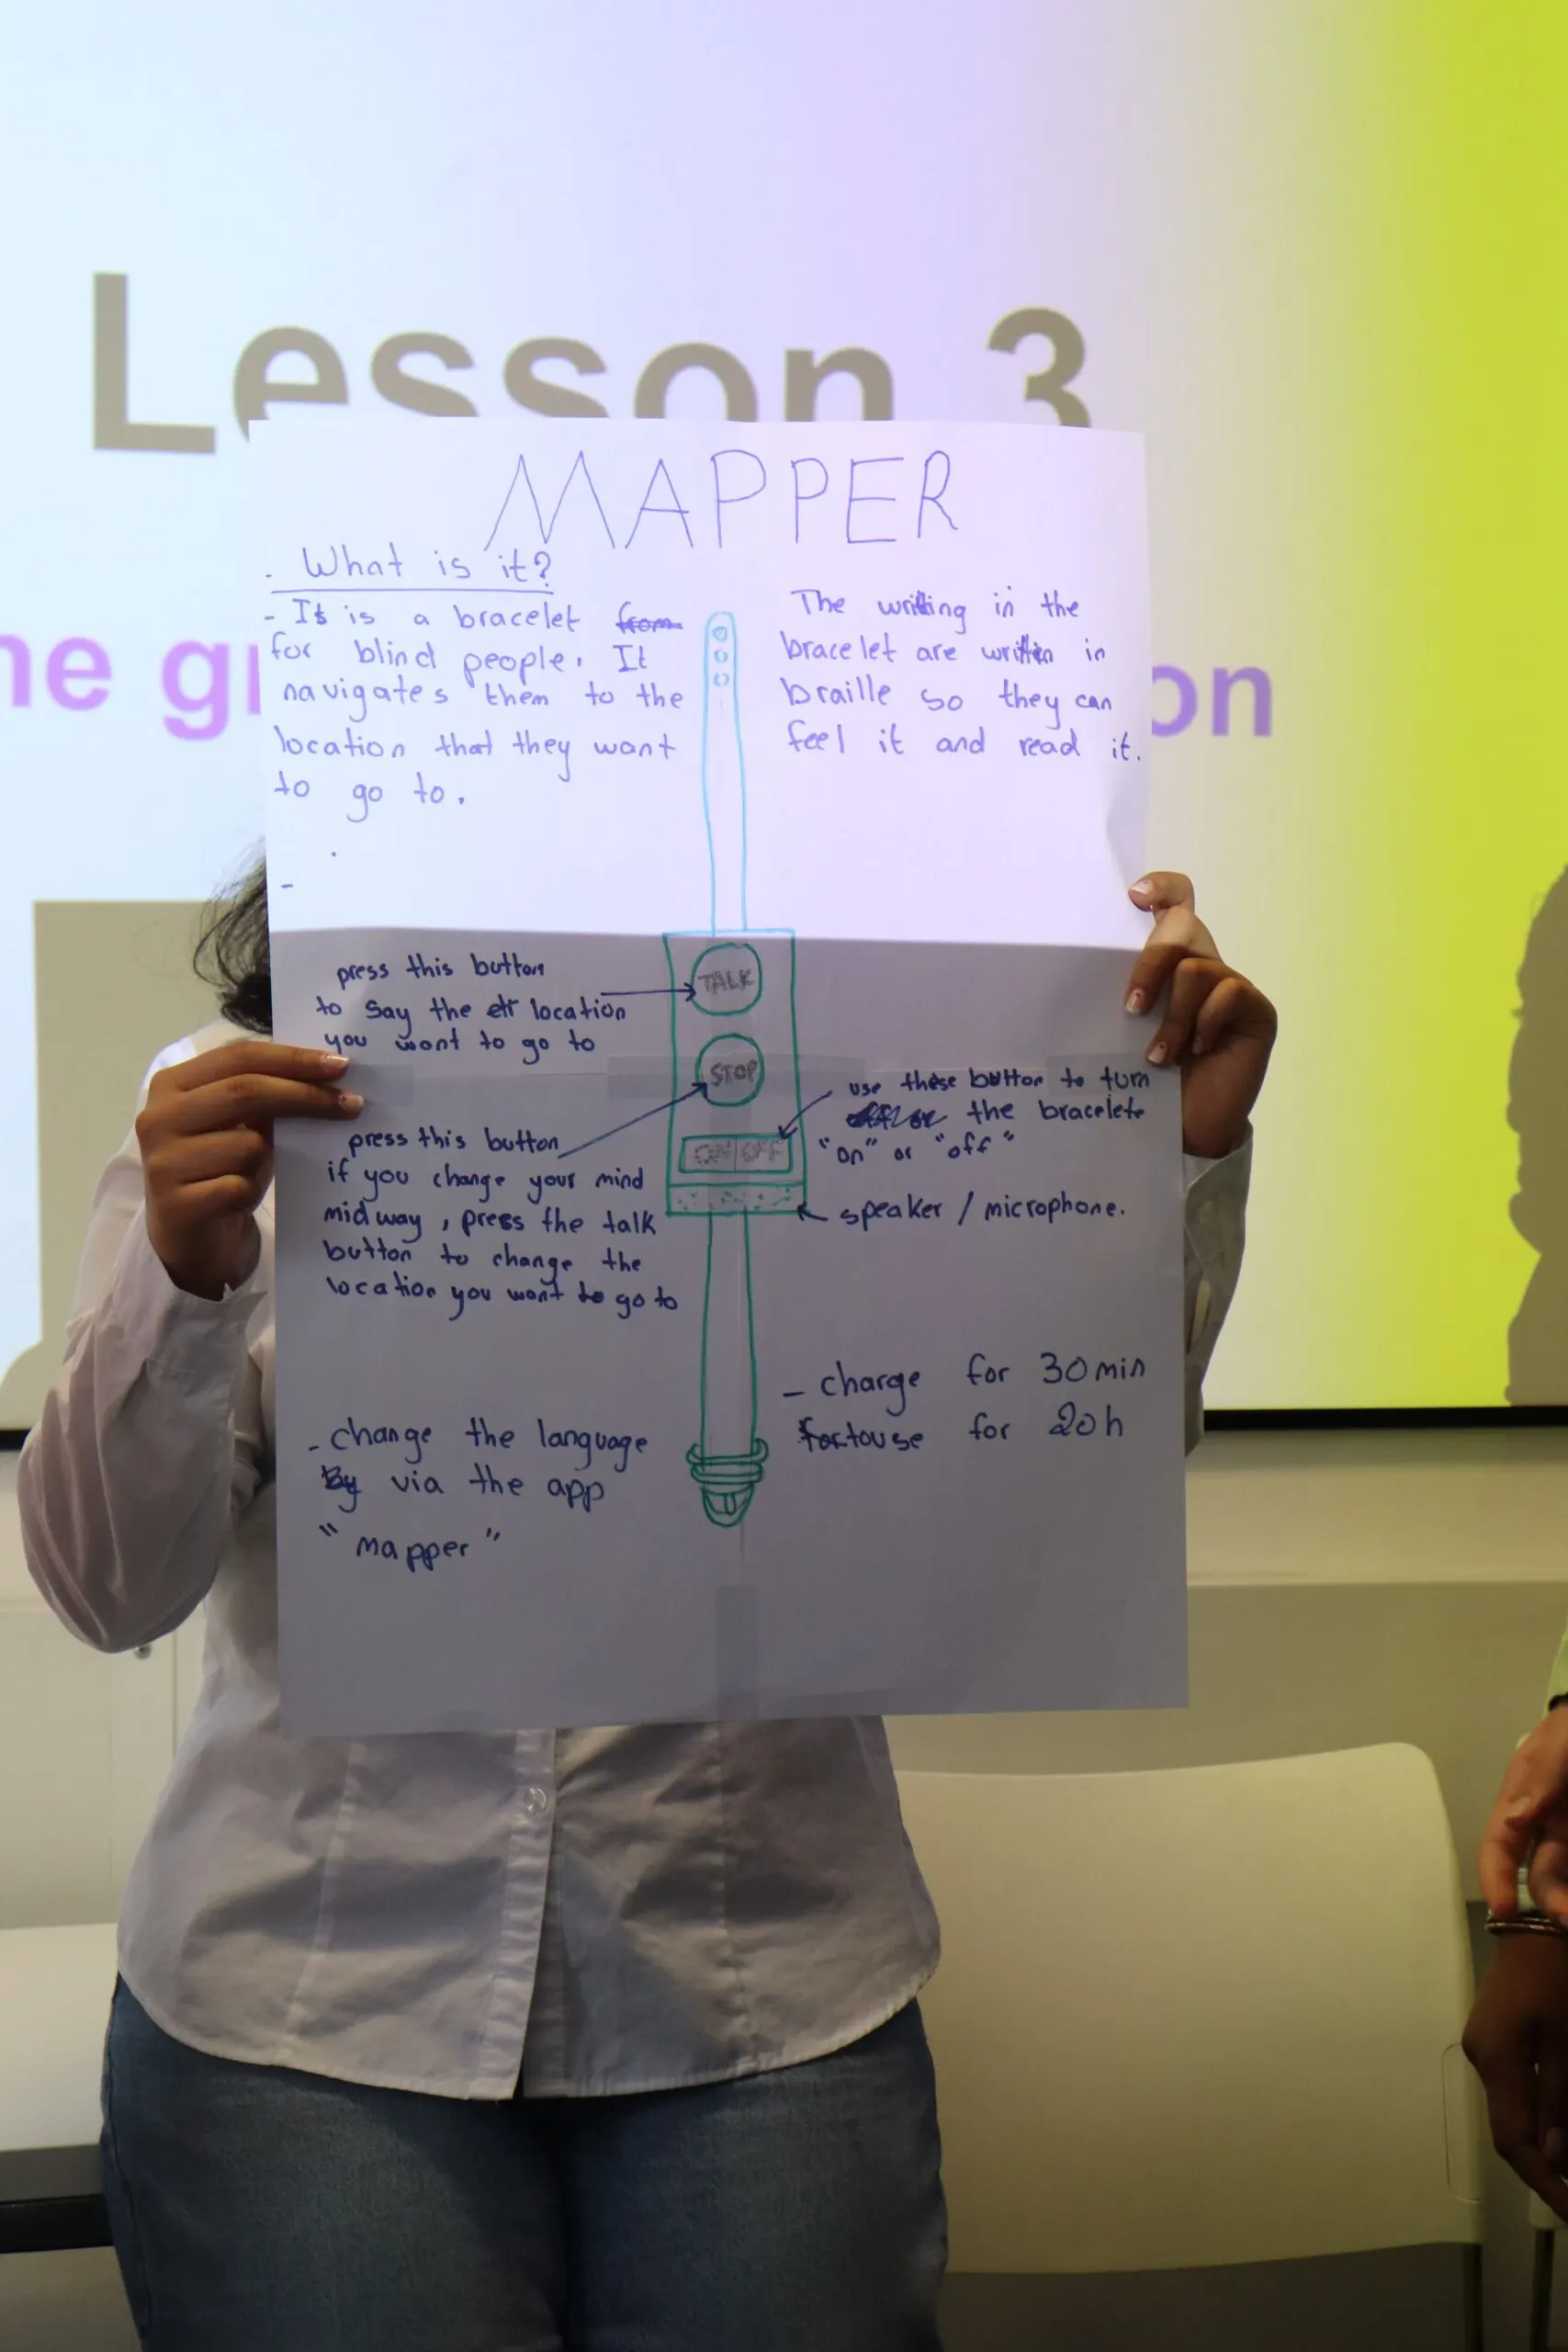 Lesson 3
ne g
on
MAPPER
. What is it?
- It is a bracelet from
for blind people. It
navigates them to the
location that they want
to go to.
The writing in the
bracelet are written in
braille so they can
feel it and read it.
press this button
to say the location
you want to go to
TALK
STOP
ON OFF
press this button
if you change your mind
midway, press the talk
button to change the
location you want to go to
use these button to turn
the bracelete
"on" or "off"
speaker / microphone.
- change the language
By via the app
"mapper"
- charge for 30min
for to use for 20h